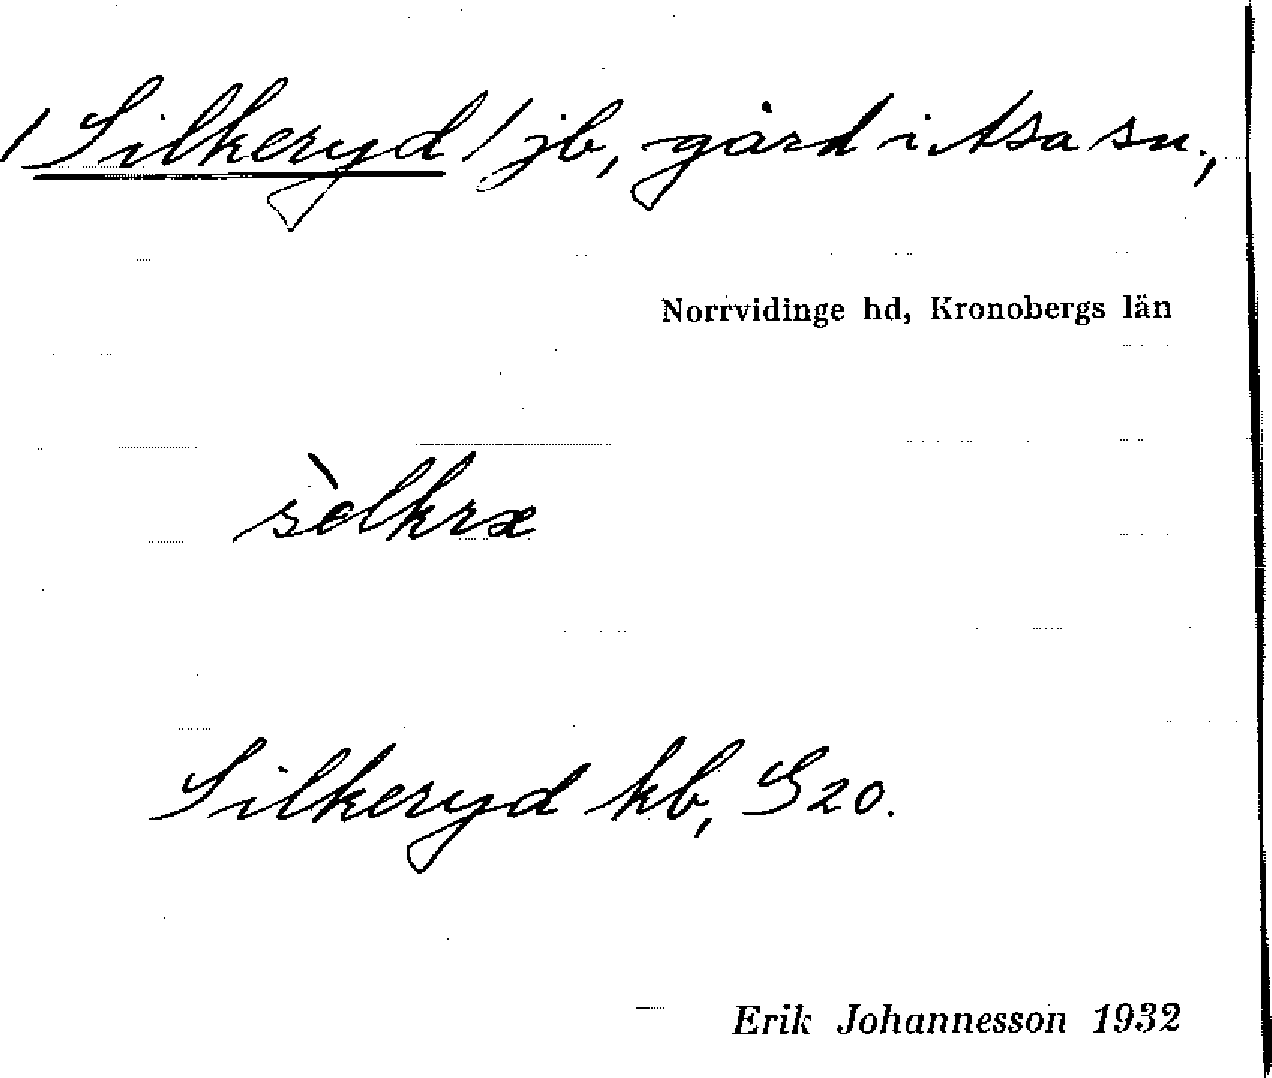 /Silkeryd/ jb, gård i Asa sn.,
Norrvidinge hd, Kronobergs län
sèlkræ
Silkeryd kb, S20.
Erik Johannesson 1932